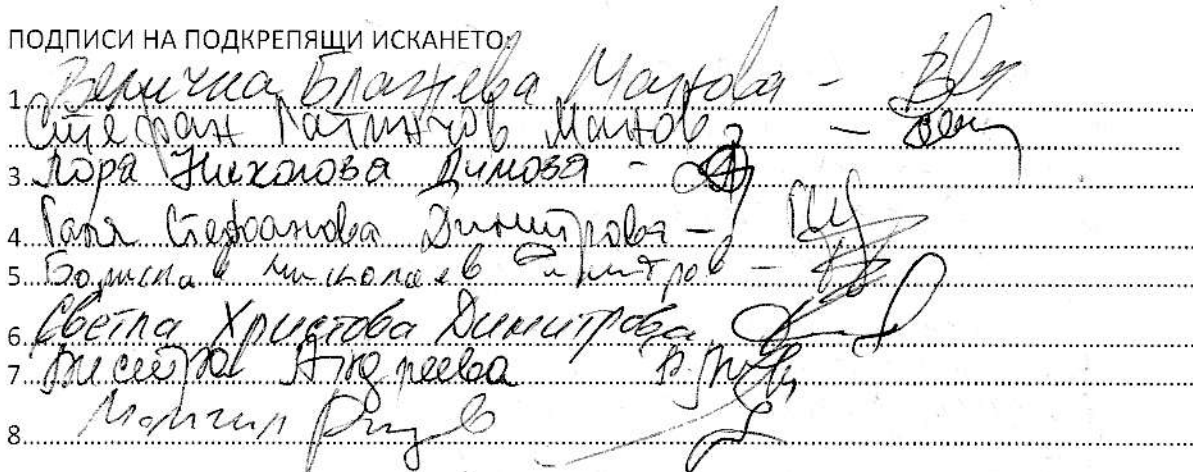 ПОДПИСИ НА ПОДКРЕПЯЩИ ИСКАНЕТО:
1. Величка Блажева Манова -
Стефан Манов -
3. Лора Николова Димова -
4. Галя Стефанова Димитрова -
5. Борислав Николаев Димитров -
6. Светла Христова Димитрова
7. Андреева
8. Момчил